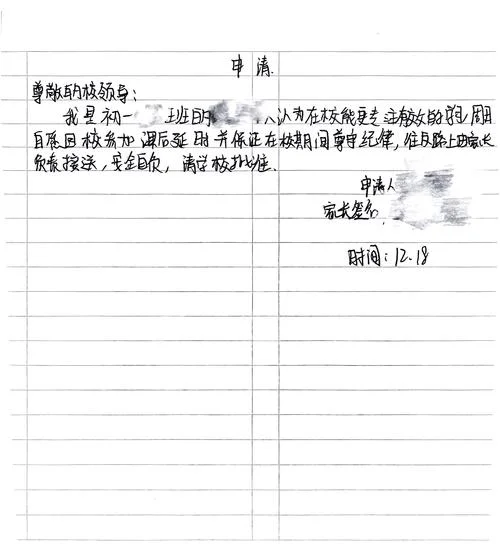 申请
尊敬的校领导:
我是初一 班的 认为在校能更专注有效的学习,周日
自愿回校参加课后延时并保证在校期间尊守纪律,往返路上由家长
负责接送,安全自负,请学校批准.
申请人
家长签名
时间:12.18